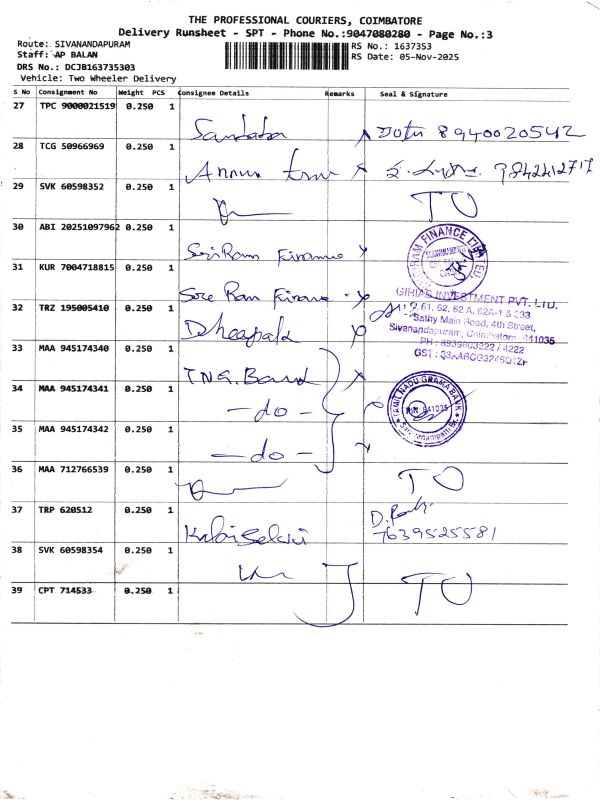 THE PROFESSIONAL COURIERS, COIMBATORE
Delivery Runsheet - SPT - Phone No.:9047080280 - Page No.:3
Route: SIVANANDAPURAM
Staff: AP BALAN
DRS No.: DCJB163735303
Vehicle: Two Wheeler Delivery
RS No.: 1637353
RS Date: 05-Nov-2025
S No Consignment No Weight PCS Consignee Details Remarks Seal & Signature
27 TPC 9000021519 0.250 1 8940020542
28 TCG 50966969 0.250 1
29 SVK 60598352 0.250 1 TO
30 ABI 20251097962 0.250 1 Sri Ram Finance
31 KUR 7004718815 0.250 1 Sree Ram Finance
32 TRZ 195005410 0.250 1
GIRIAS INVESTMENT PVT. LTD.
61, 62, 62 A, 62A-1 & 233
Sathy Main Road, 4th Street,
Sivanandapuram, Coimbatore. 641035
33 MAA 945174340 0.250 1
34 MAA 945174341 0.250 1 -do-
TAMIL NADU GRAMA BANK
641035
35 MAA 945174342 0.250 1 -do-
36 MAA 712766539 0.250 1 TO
37 TRP 620512 0.250 1 Kalaiselvi 7639525581
38 SVK 60598354 0.250 1
39 CPT 714533 0.250 1 TO